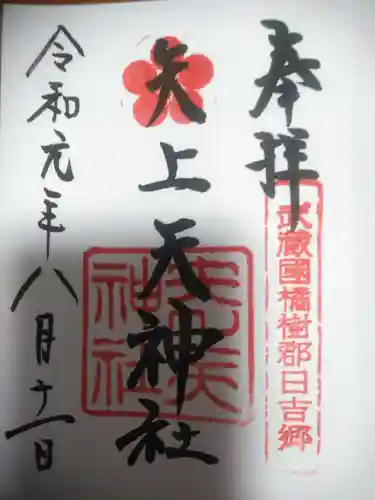 奉拝
武蔵國橘樹郡日吉郷
矢上天神社
令和元年八月十一日